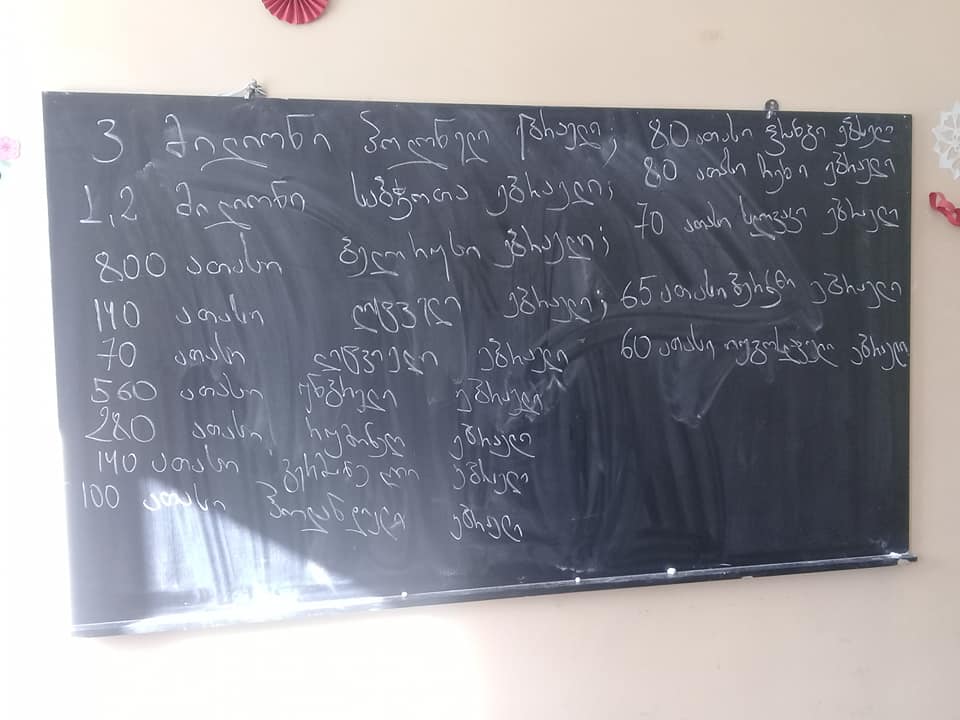 3 მილიონი პოლონელი ებრაელი;
1,2 მილიონი საბჭოთა ებრაელი;
800 ათასი ბელორუსი ებრაელი;
140 ათასი ლიტველი ებრაელი;
70 ათასი ლატველი ებრაელი
560 ათასი უნგრელი ებრაელი
280 ათასი რუმინელ ებრაელი
140 ათასი გერმანელი ებრაელი
100 ათასი ჰოლანდიელი ებრაელი
80 ათასი ფრანგი ებრაელი
80 ათასი ჩეხი ებრაელი
70 ათასი სლოვაკი ებრაელი
65 ათასი ბერძენი ებრაელი
60 ათასი იუგოსლაველი ებრაელი